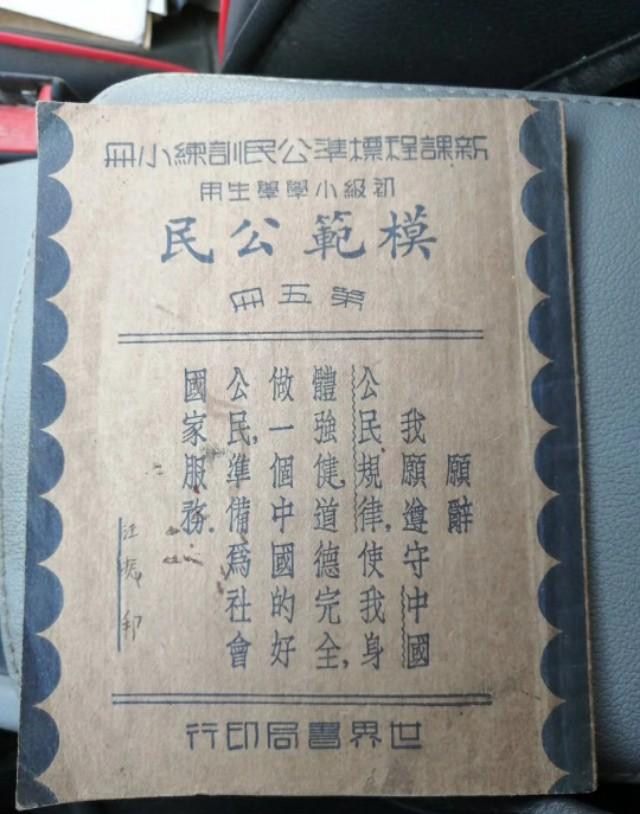 新課程標準公民訓練小冊
初級小學學生用
模範公民
第五冊
願辭
我願遵守中國
公民規律,使我身
體強健,道德完全,
做一個中國的好
公民,準備為社會
國家服務.
世界書局印行